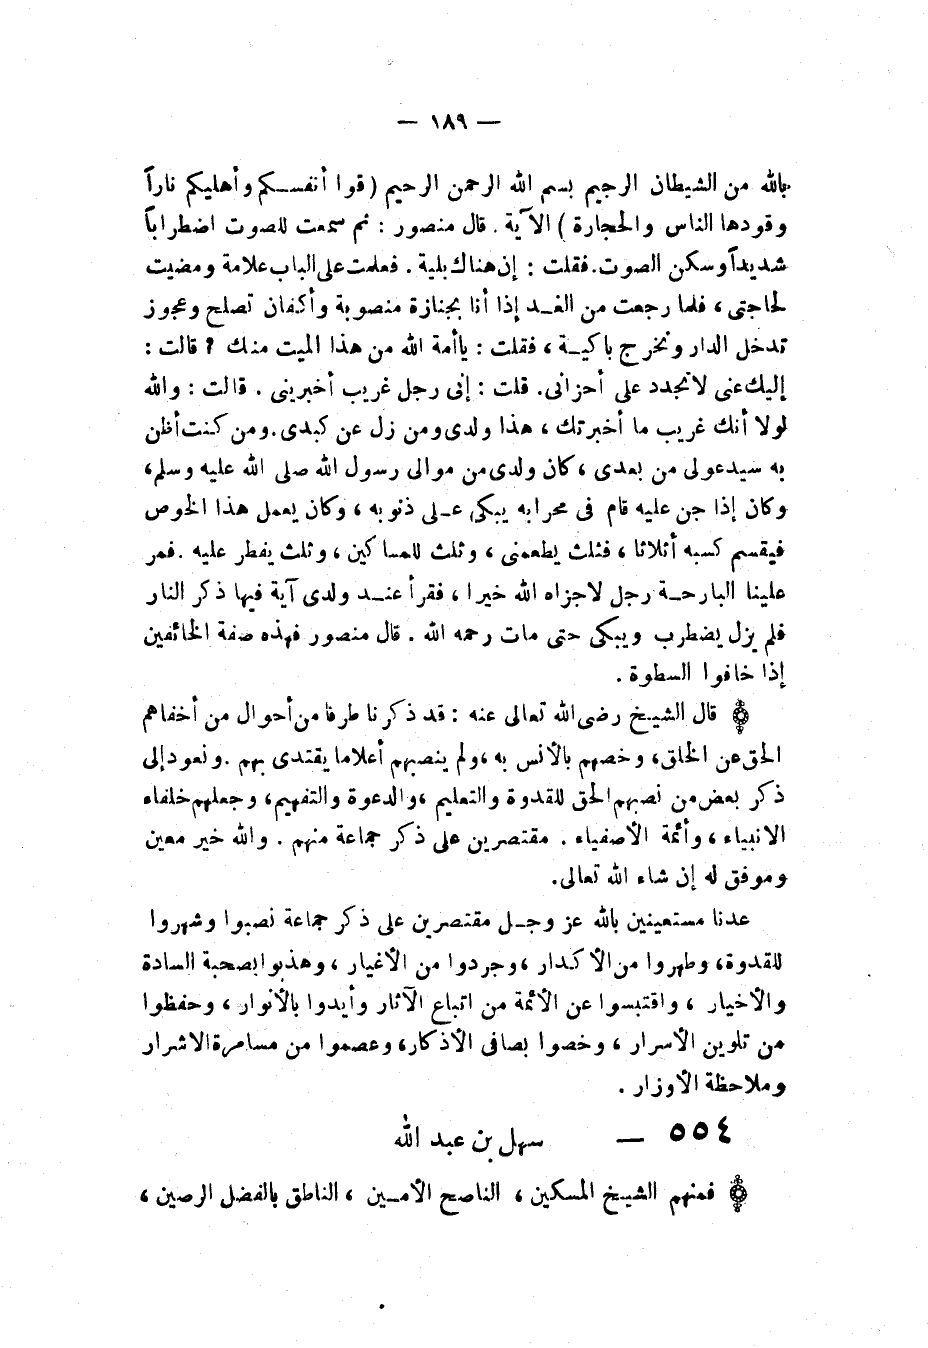 — ١٨٩ —
بالله من الشيطان الرجيم بسم الله الرحمن الرحيم ( قوا أنفسكم وأهليكم ناراً
وقودها الناس والحجارة ) الآية . قال منصور : ثم سمعت للصوت اضطراباً
شديداً وسكن الصوت. فقلت : إن هناك بلية . فعلمت على الباب علامة ومضيت
لحاجتى ، فلما رجعت من الغد إذا أنا بجنازة منصوبة وأكفان تصلح وعجوز
تدخل الدار وتخرج باكية ، فقلت : ياأمة الله من هذا الميت منك ؟ قالت :
إليك عنى لا تجدد على أحزانى. قلت : إنى رجل غريب أخبرينى . قالت : والله
لولا أنك غريب ما أخبرتك ، هذا ولدى ومن زل عن كبدى. ومن كنت أظن
به سيدعولى من بعدى ، كان ولدى من موالى رسول الله صلى الله عليه وسلم،
وكان إذا جن عليه قام فى محرابه يبكى على ذنوبه ، وكان يعمل هذا الخوص
فيقسم كسبه أثلاثا ، فثلث يطعمنى ، وثلث للمساكين ، وثلث يفطر عليه . فمر
علينا البارحة رجل لاجزاه الله خيرا ، فقرأ عند ولدى آية فيها ذكر النار
فلم يزل يضطرب ويبكى حتى مات رحمه الله . قال منصور فهذه صفة الخائفين
إذا خافوا السطوة .
قال الشيخ رضى الله تعالى عنه : قد ذكرنا طرفا من أحوال من أخفاهم
الحق عن الخلق، وخصهم بالأنس به ، ولم ينصبهم أعلاما يقتدى بهم . ونعود إلى
ذكر بعض من نصبهم الحق للقدوة والتعليم ، والدعوة والتفهيم، وجعلهم خلفاء
الانبياء ، وأئمة الأصفياء . مقتصرين على ذكر جماعة منهم . والله خير معين
وموفق له إن شاء الله تعالى.
عدنا مستعينين بالله عز وجل مقتصرين على ذكر جماعة نصبوا وشهروا
للقدوة، وطهروا من الأكدار ، وجردوا من الأغيار ، وهذبوا بصحبة السادة
والأخيار ، واقتبسوا عن الأئمة من اتباع الآثار وأيدوا بالأنوار ، وحفظوا
من تلوين الأسرار ، وخصوا بصافى الأذكار، وعصموا من مسامرة الاشرار
وملاحظة الأوزار .
٥٥٤ — سهل بن عبد الله
فمنهم الشيخ المسكين ، الناصح الأمين ، الناطق بالفضل الرصين ،